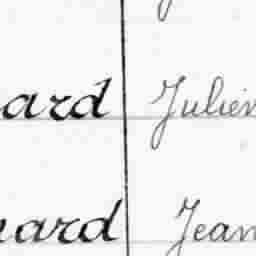 ard Julien
nard Jean